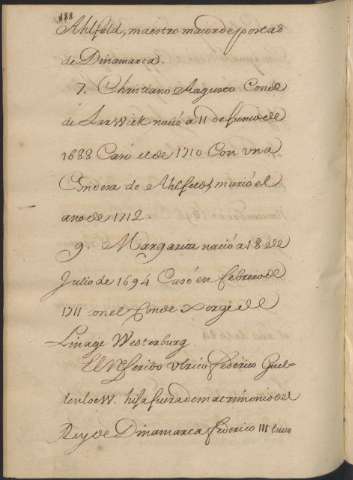 188
Ahlfeld, maestro maior de postas
de Dinamarca.
7. Christiano Augusto Conde
de Larwick nació a 11 de Junio de
1688 Casó el de 1710 Con vna
Condesa de Ahlfeld murió el
ano de 1712
9. Margarita nació a 18 de
Julio de 1694 Casó en febrero de
1711 con el Conde Jorge de
Linage Westerburg
El Referido Vlrico federico Guel
denloeW. hijo fuera de matrimonio del
Rey de Dinamarca federico III tuvo